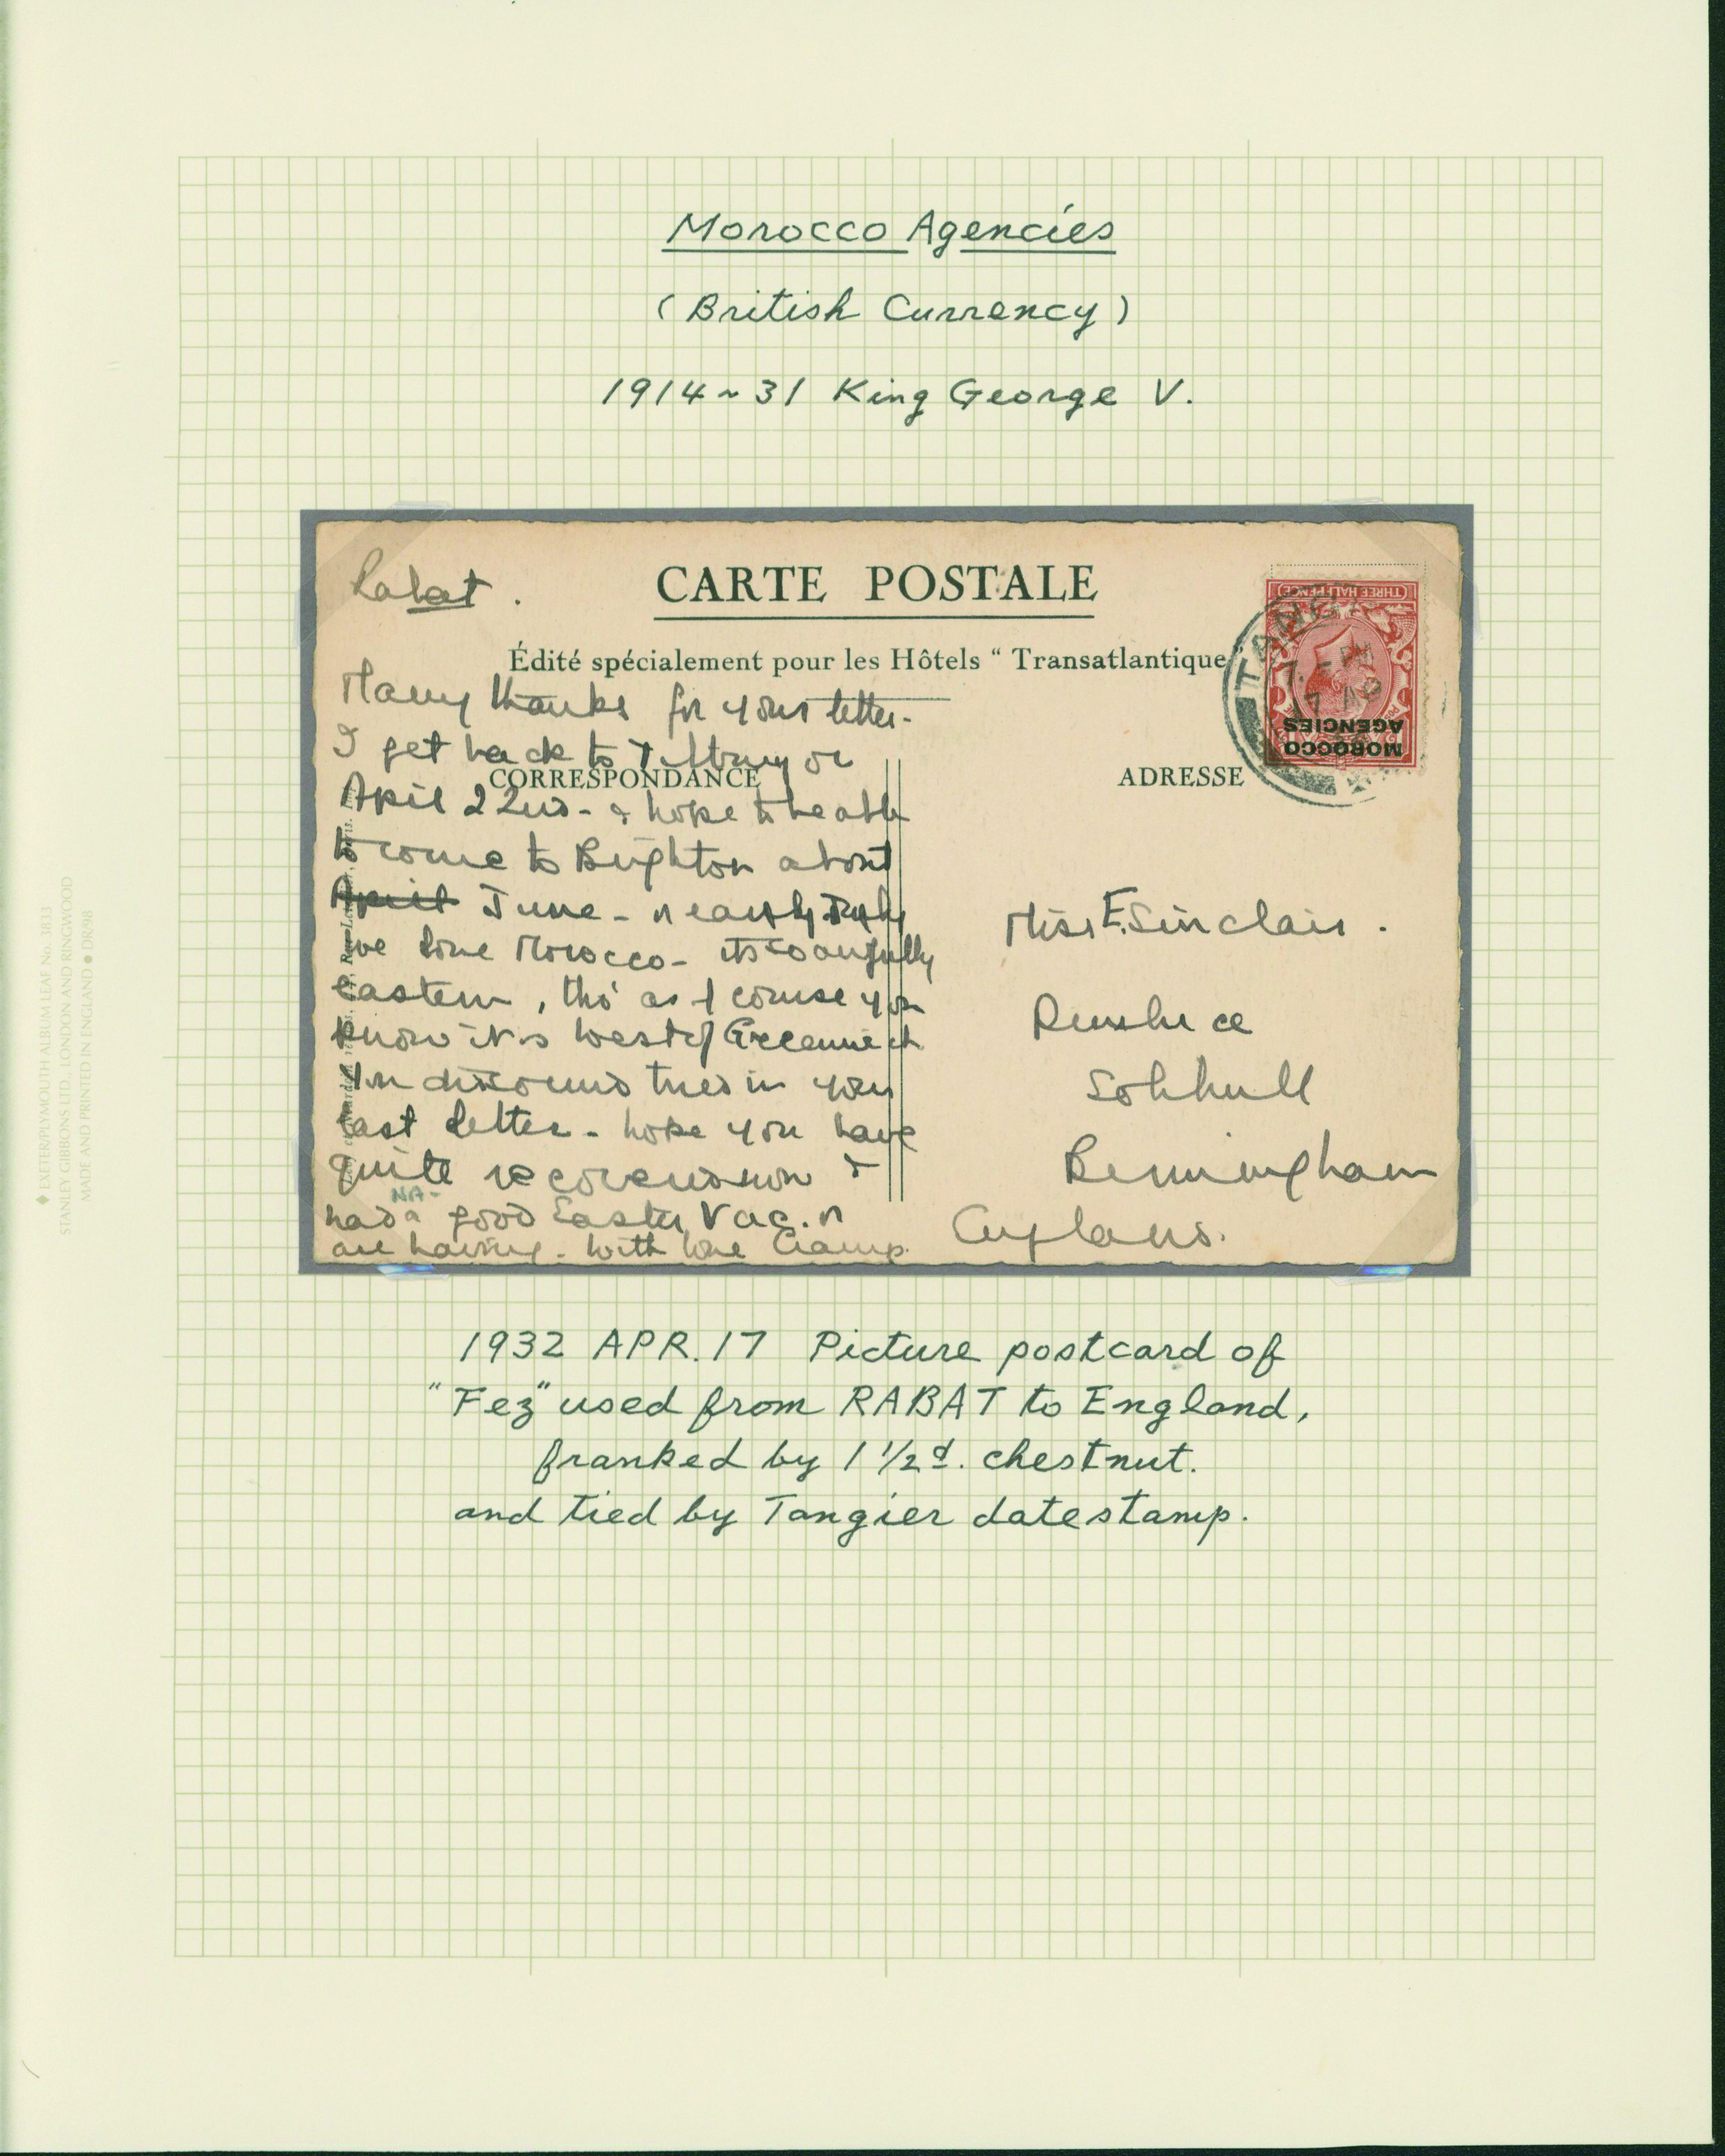 Morocco Agencies
(British Currency)
1914~31 King George V.
Rabat.
CARTE POSTALE
Édité spécialement pour les Hôtels “ Transatlantique ”
THREE HALF PENCE
MOROCCO
AGENCIES
TANG
17 AP
Many thanks for your letter-
I get back to Tilbury on
CORRESPONDANCE
ADRESSE
April 22nd - & hope to be able
to come to Brighton about
April June - or early July
we love Morocco - its so awfully
eastern, tho' as of course you
know it is west of Greenwich
in your
last letter - hope you have
quite recovered now &
had a good Easter Vac. or
are having - With love
Miss E. Sinclair.
Solihull
Birmingham
England.
1932 APR. 17 Picture postcard of
"Fez" used from RABAT to England,
franked by 1 1/2d. chestnut.
and tied by Tangier datestamp.
◆ EXETER/PLYMOUTH ALBUM LEAF No. 3833
STANLEY GIBBONS LTD., LONDON AND RINGWOOD
MADE AND PRINTED IN ENGLAND ● DR098